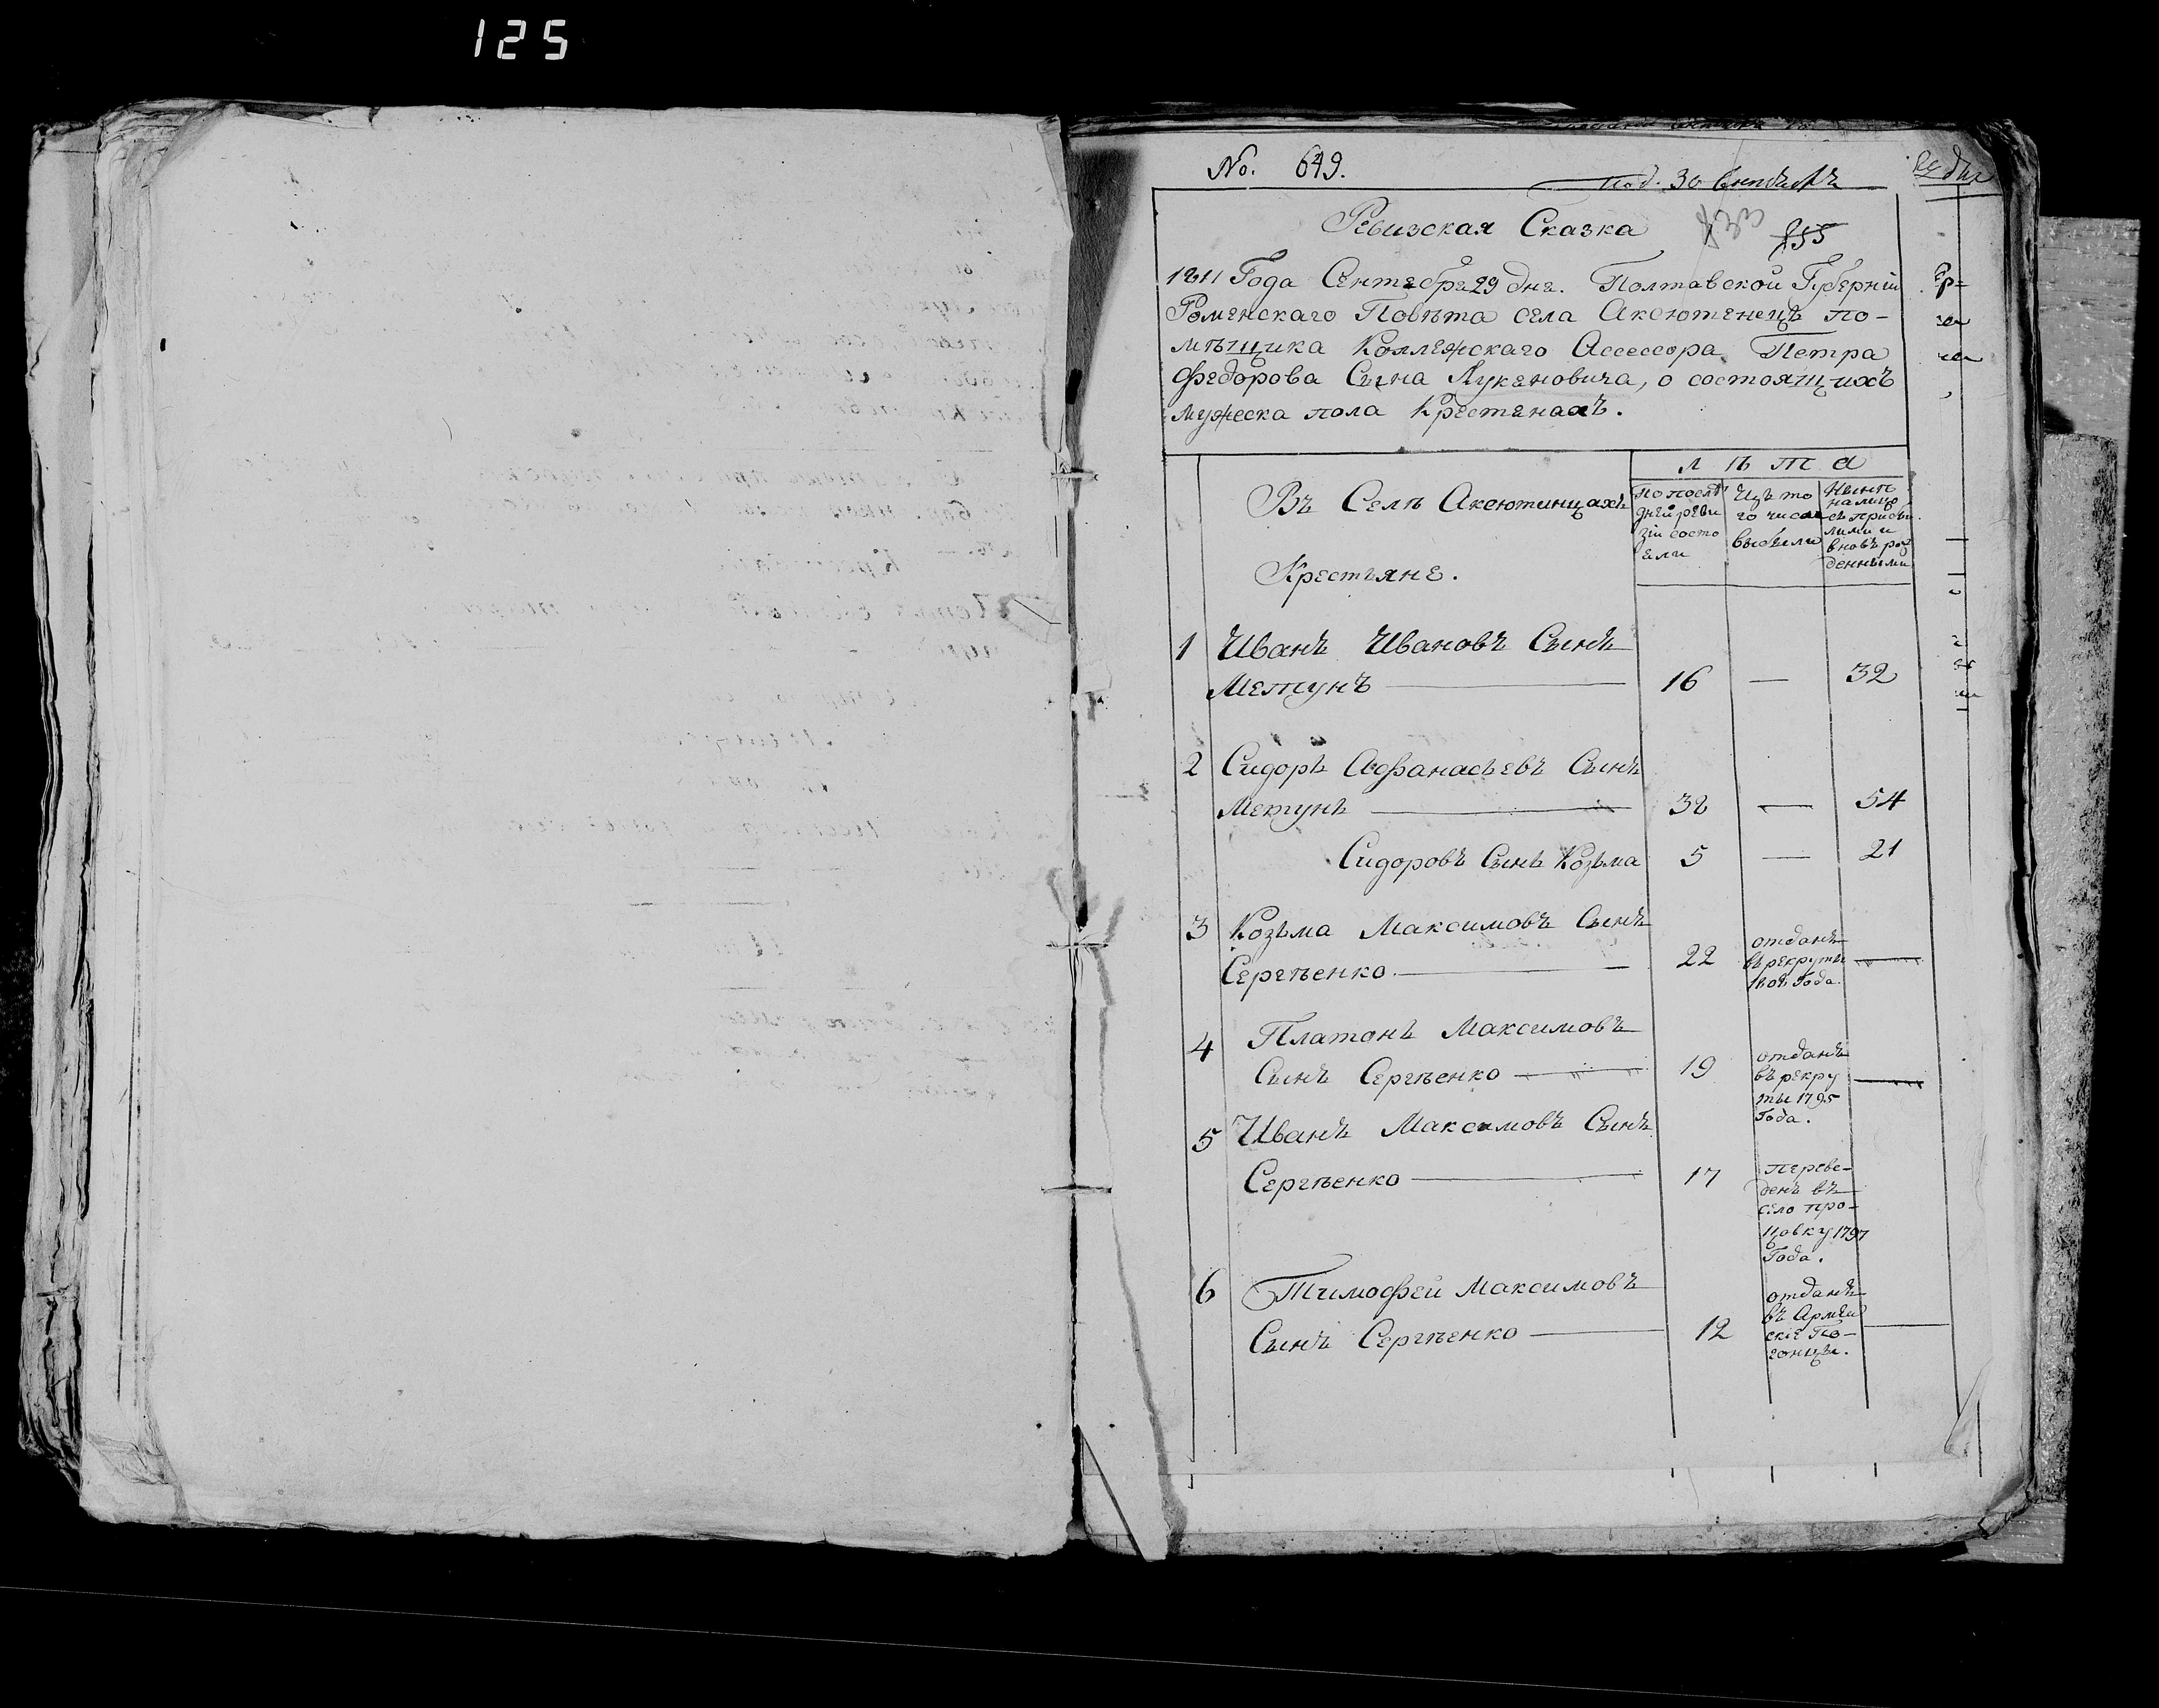 125
No. 649.
под. 30 Сентября
Ревизская Сказка
433
255
1811 Года Сентебре 29 дне. Полтавской Губерніи
Роменскаго Повѣта села Аксютенецъ по-
мѣщика Коллежскаго Ассессора Петра
Федорова Сына Лукеновича, о состоящихъ
мужеска пола Крестенахъ.
Лѣта
Въ Селѣ Аксютинцахъ
Крестьяне.
По послѣ
дней реви
зіи состо
ели
Изъ то
го числа
выбыли
Нынѣ
налицо
съ прибы
лими и
вновь рож
денными
1 Иванъ Ивановъ Сынъ
Метунъ — 16 — 32
2 Сидоръ Афанасьевъ Сынъ
Метунъ — 32 — 54
Сидоровъ Сынъ Козьма 5 — 21
3 Козьма Максимовъ Сынъ
Сергѣенко — 22
отданъ
въ рекруты
1802 Года.
—
4 Платонъ Максимовъ
Сынъ Сергѣенко — 19
отданъ
въ рекру
ты 1795
Года.
—
5 Иванъ Максимовъ Сынъ
Сергѣенко — 17
переве-
денъ въ
село про-
цовку 1797
Года.
6 Тимофей Максимовъ
Сынъ Сергѣенко — 12
отданъ
въ Армей
скіе По-
гонцы.
—